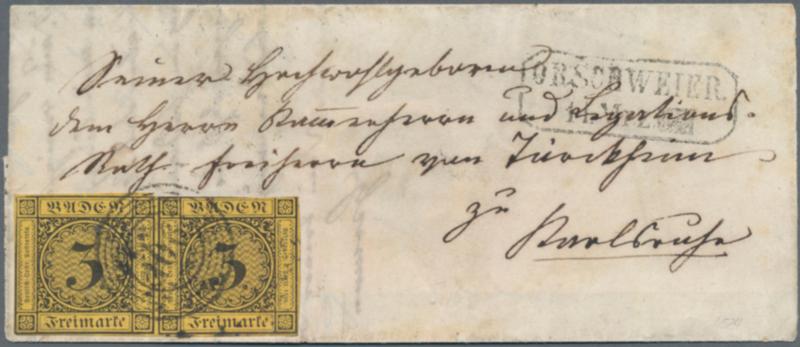 Seiner Hochwohlgeboren
dem Herrn Kammerherrn und Legations-
Rath Freiherrn von Türckheim
zu
Karlsruhe
ORSCHWEIER.
BADEN BADEN
3 3
Freimarke Freimarke